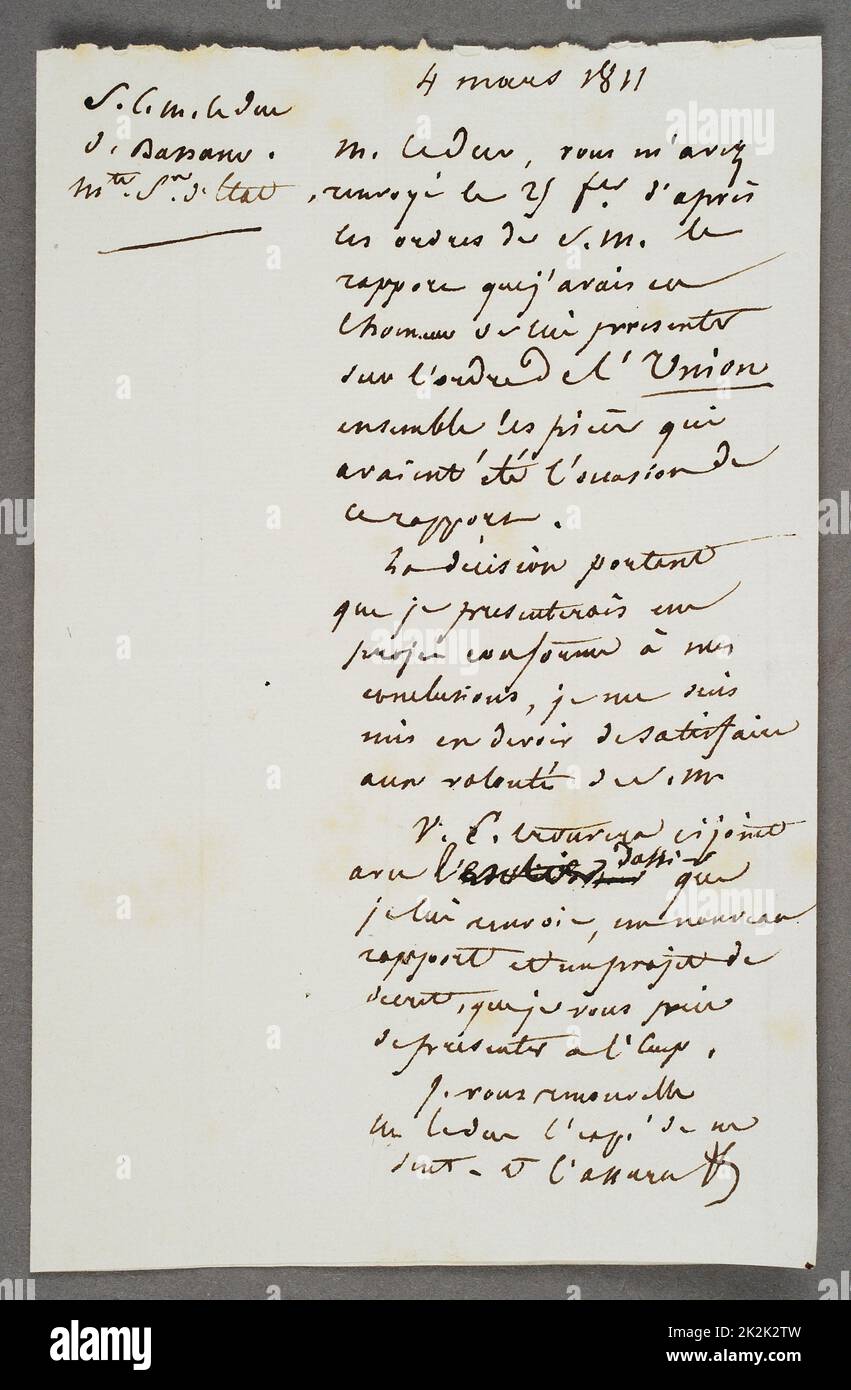 4 mars 1811
S. E. M. le duc
de Bassano.
Mtre Sre d'Etat
M. le duc, vous m'avez
renvoyé le 25 fer d'après
les ordres de S. M. le
rapport que j'avais eu
l'honneur de lui présenter
sur l'ordre de l'Union
ensemble les pièces qui
avaient été l'occasion de
ce rapport.
La décision portant
que je présenterais un
projet conforme à mes
conclusions, je me suis
mis en devoir de satisfaire
aux volontés de S. M.
V. E. trouvera ci joint
avec dossier que
je lui renvoie, un nouveau
rapport et un projet de
decret, que je vous prie
de présenter à l'Emp.
Je vous renouvelle
M. le duc l'exp. de me
sent. et l'assura
alamy
Image ID: 2K2K2TW
www.alamy.com